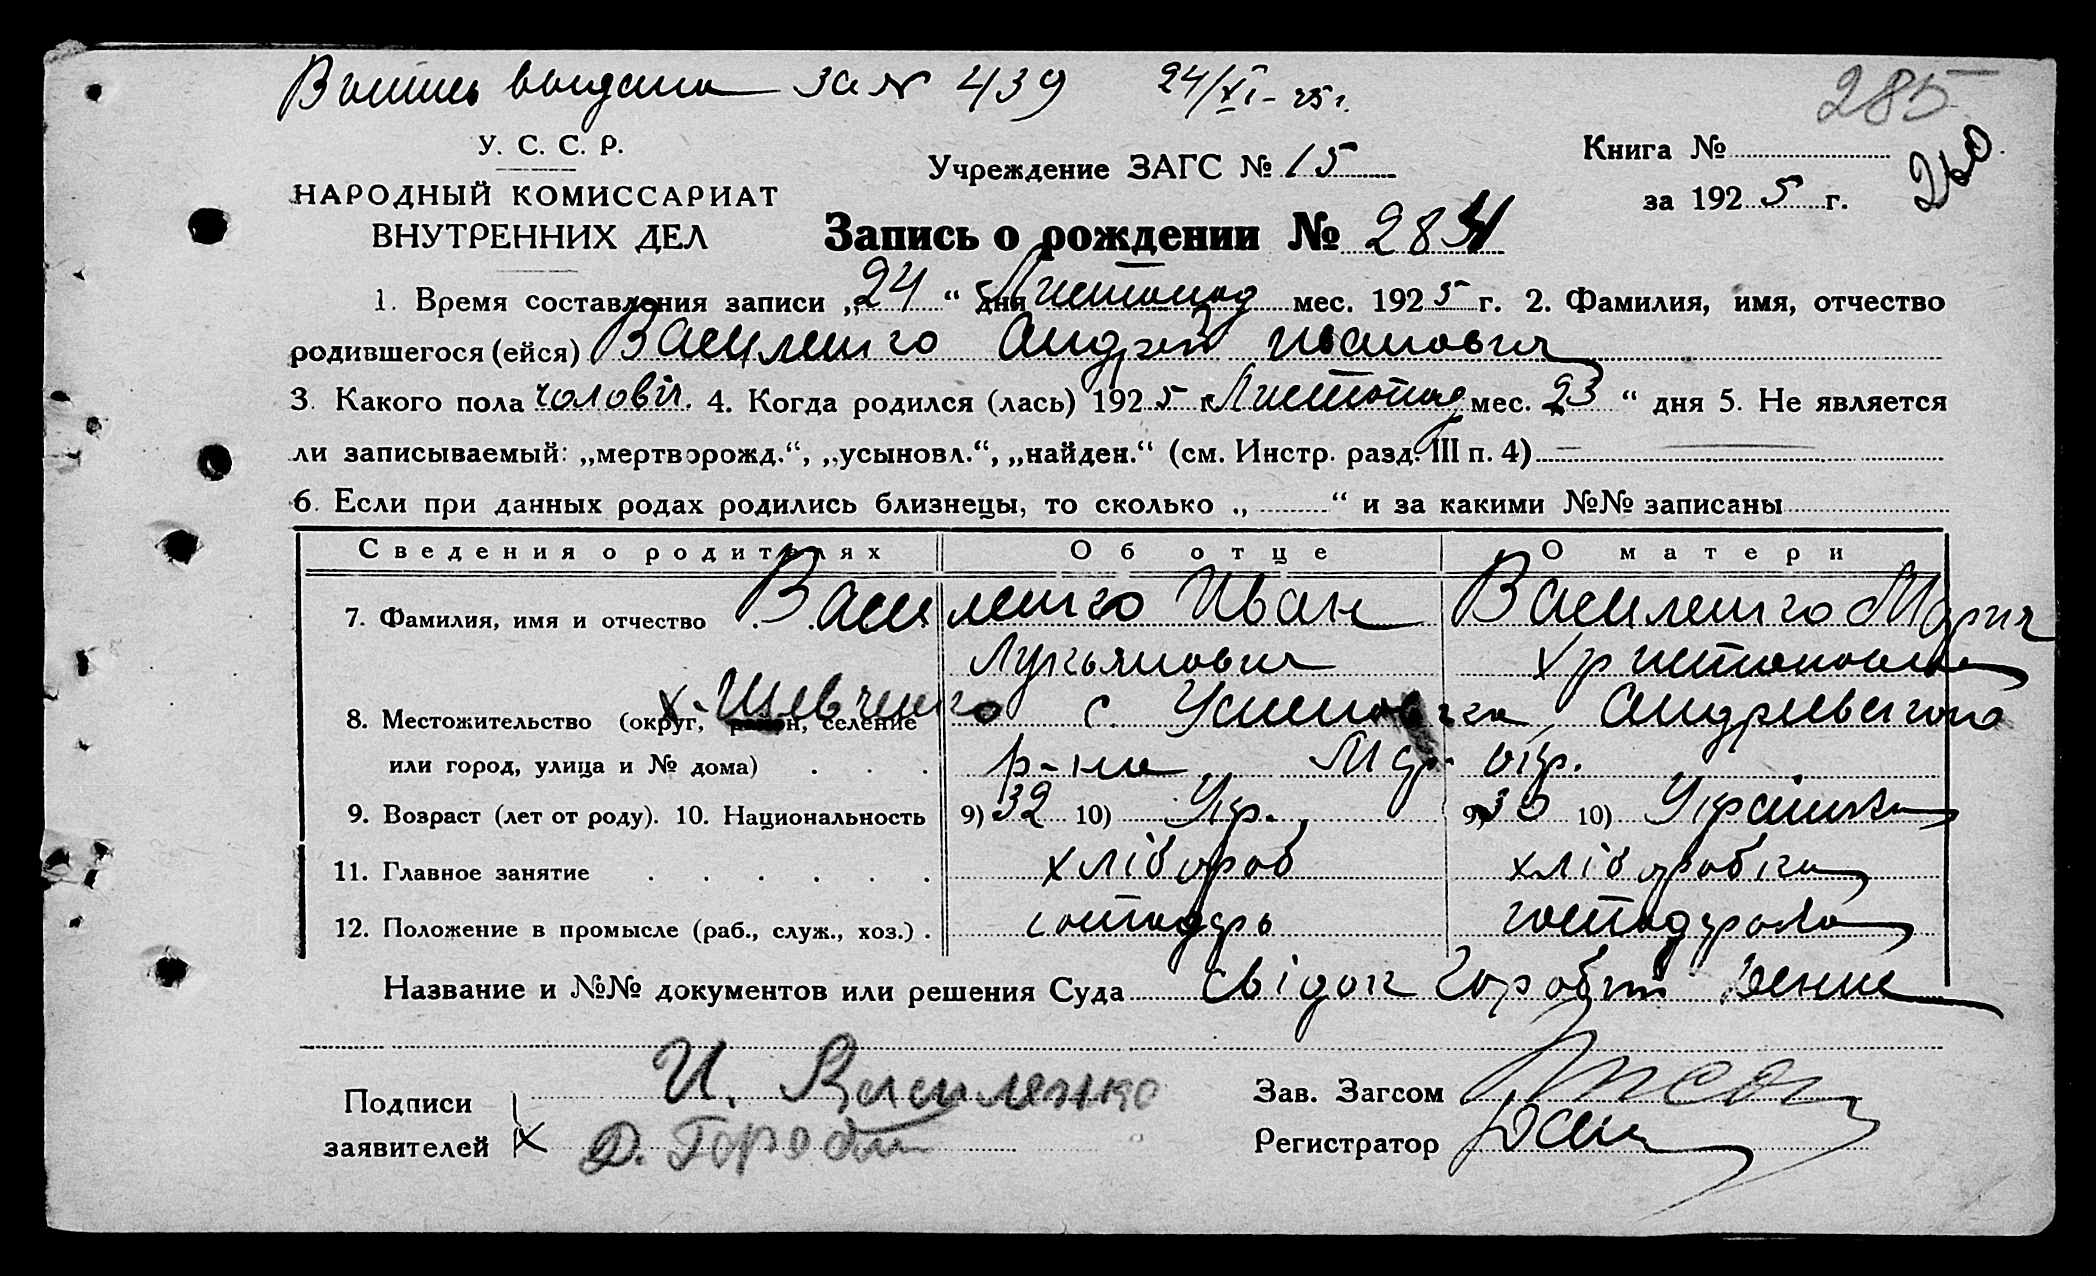 Выпись выдана за № 439 24/XI-25 г.
285
260
У. С. С. Р.
НАРОДНЫЙ КОМИССАРИАТ
ВНУТРЕННИХ ДЕЛ
Учреждение ЗАГС № 15
Книга №
за 1925 г.
Запись о рождении № 284
1. Время составления записи „24“ дня Листопад мес. 1925 г. 2. Фамилия, имя, отчество
родившегося (ейся) Василенко Андрей Иванович
3. Какого пола чоловіч. 4. Когда родился (лась) 1925 г. Листопад мес. 23 “ дня 5. Не является
ли записываемый: „мертворожд.“, „усыновл.“, „найден.“ (см. Инстр. разд. III п. 4) —
6. Если при данных родах родились близнецы, то сколько „ “ и за какими №№ записаны
Сведения о родителях Об отце О матери
7. Фамилия, имя и отчество Василенко Иван Василенко Мария
Лукьянович Христоновна
8. Местожительство (округ, район, селение х. Шевченко с. Успеновка Андриевского
или город, улица и № дома) . . . р-на Мар. окр.
9. Возраст (лет от роду). 10. Национальность 9) 32 10) Укр. 9) 30 10) Українка
11. Главное занятие . . . . . . хлібороб хліборобка
12. Положение в промысле (раб., служ., хоз.) . господарь господарька
Название и №№ документов или решения Суда свідок Горобец Денис
Подписи И. Василенко
заявителей Д. Горобец
Зав. Загсом
Регистратор